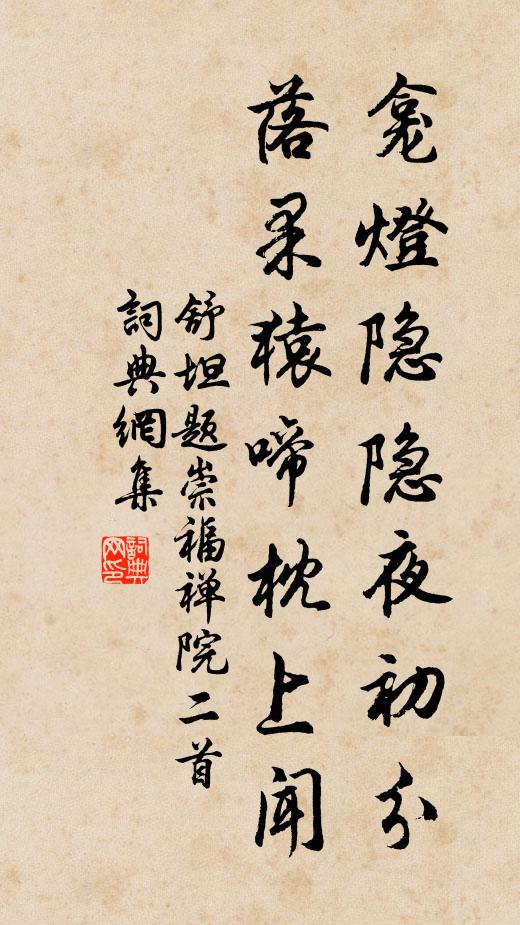 龛燈隐隐夜初分
落果猿啼枕上闻
舒坦题崇福禅院二首
詞典網集
詞典网印